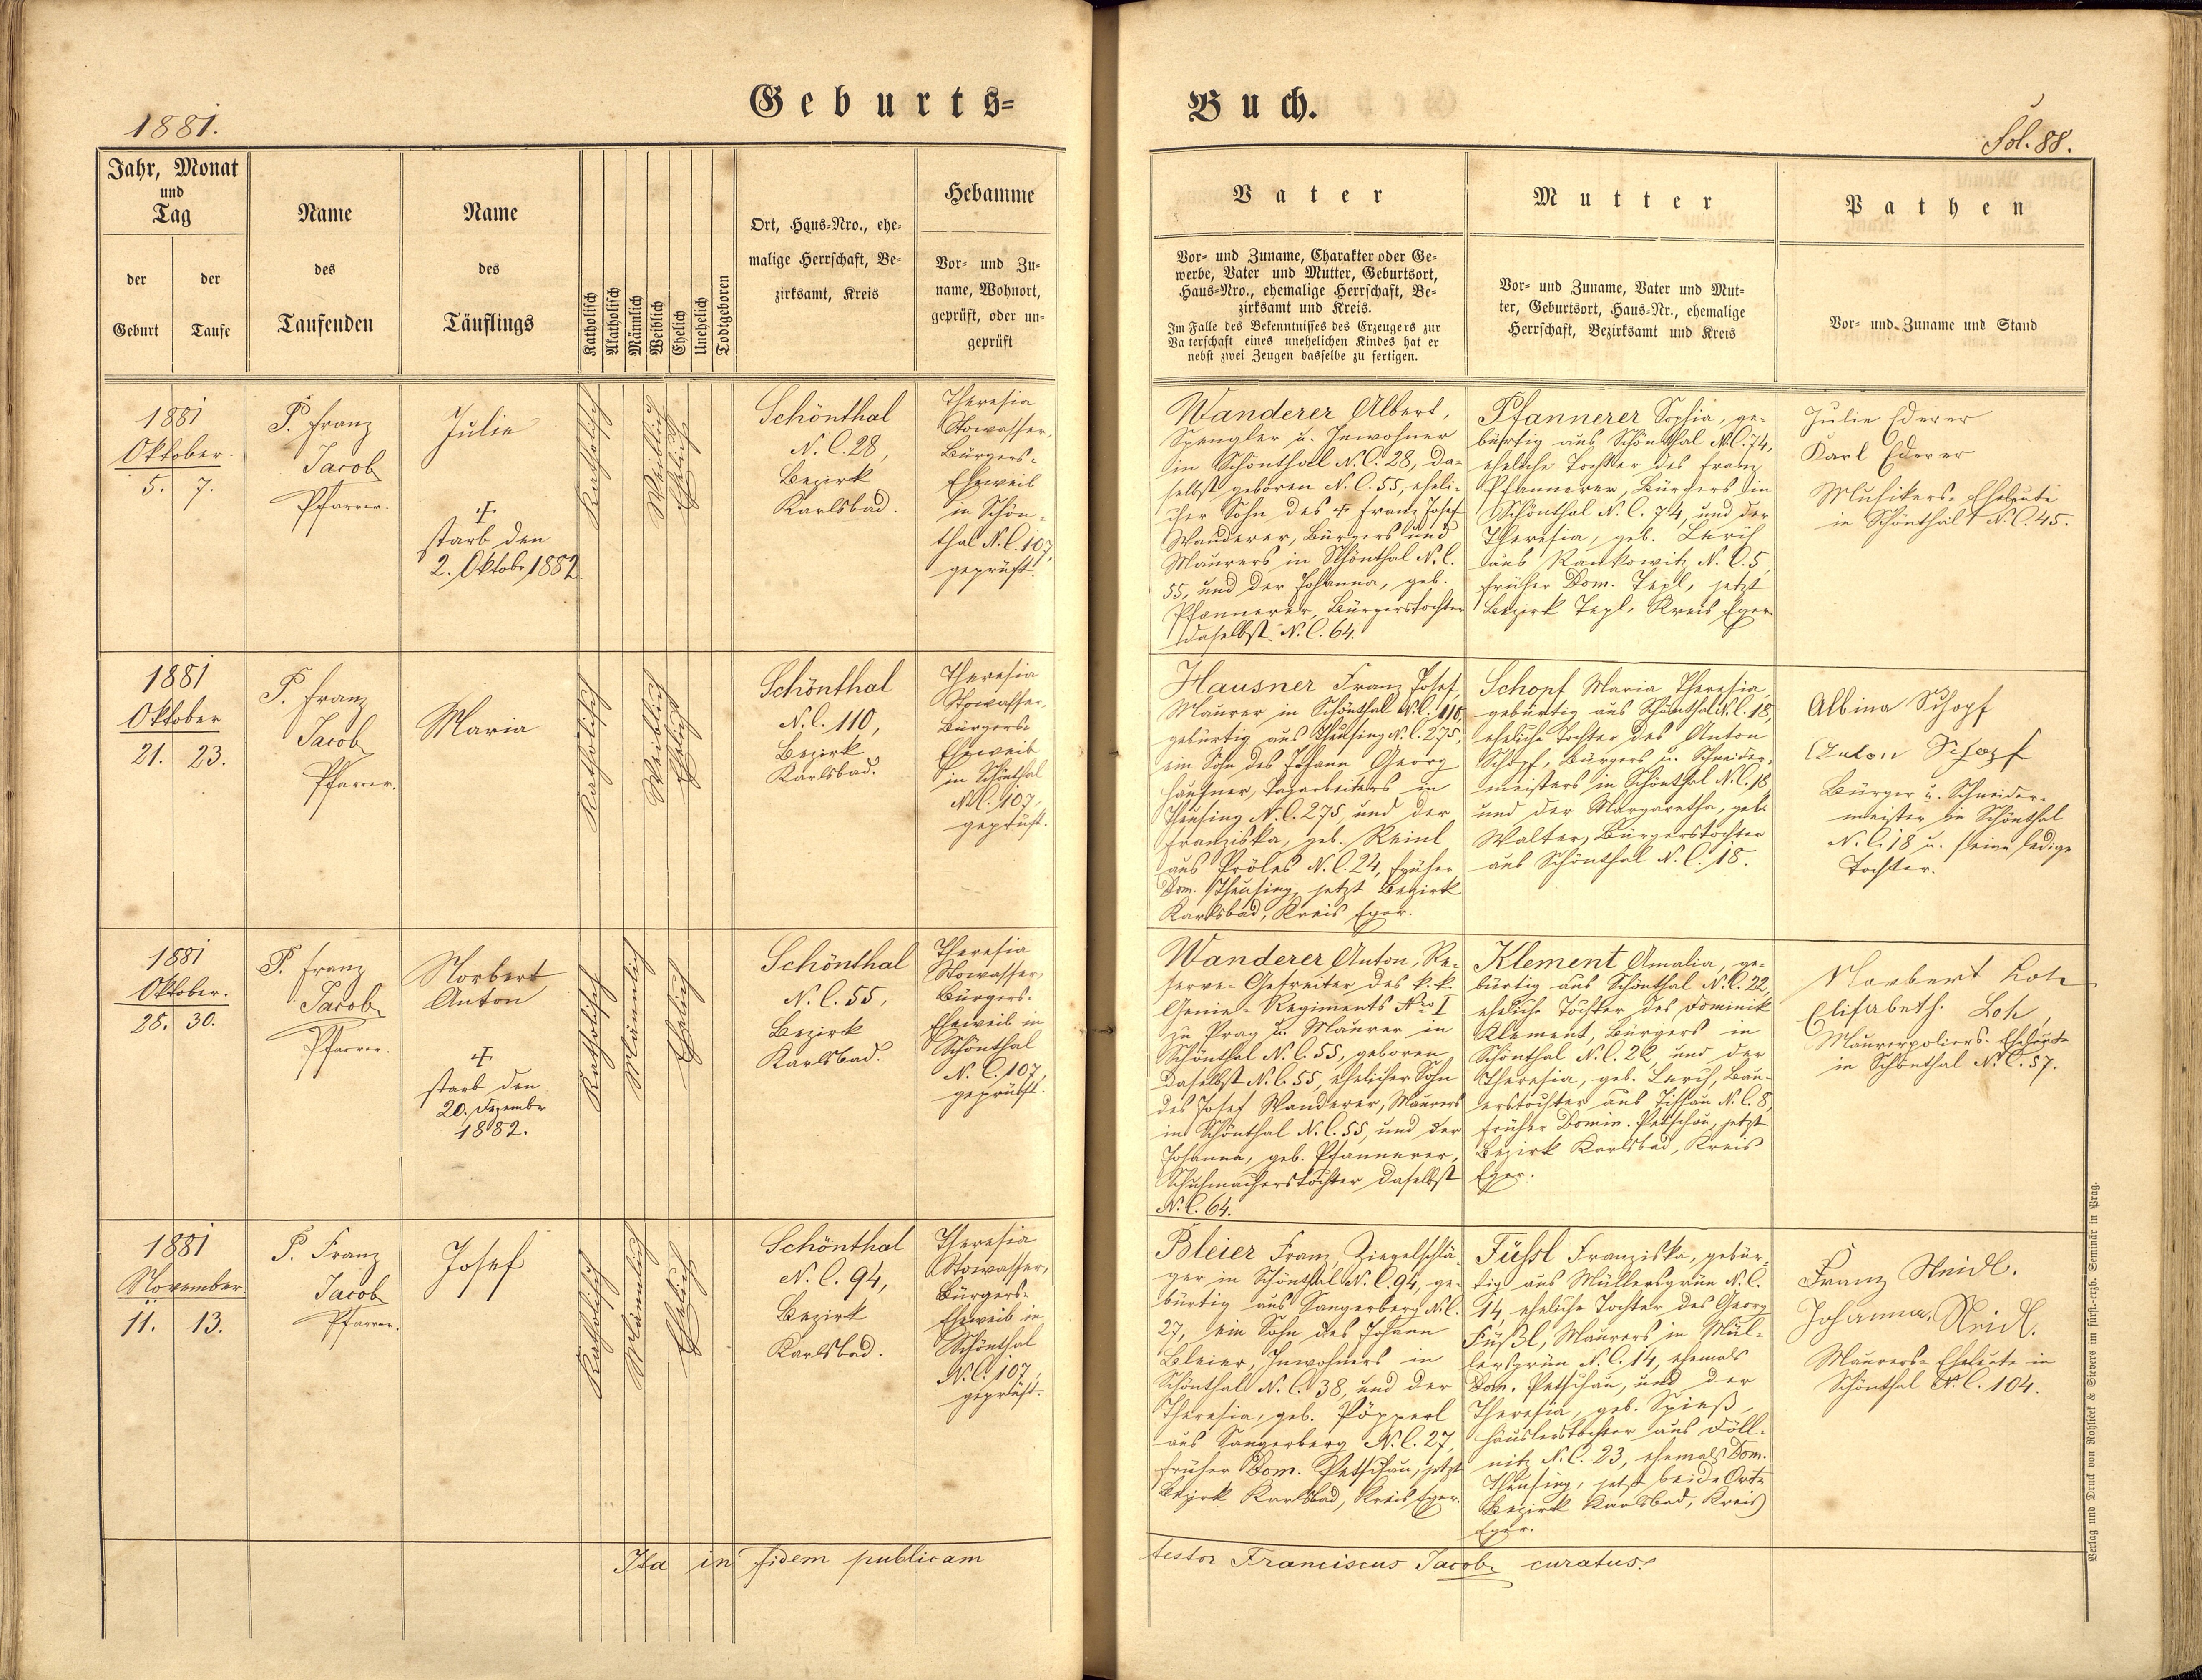 1881.
Geburts=
Buch.
Fol. 88.
Jahr, Monat
und
Tag
der
Geburt
der
Taufe
Name
des
Taufenden
Name
des
Täuflings
Katholisch
Akatholisch
Männlich
Weiblich
Ehelich
Unehelich
Todtgeboren
Ort, Haus-Nro., ehe-
malige Herrschaft, Be-
zirksamt, Kreis
Hebamme
Vor- und Zu-
name, Wohnort,
geprüft, oder un-
geprüft
Vater
Vor- und Zuname, Charakter oder Ge-
werbe, Vater und Mutter, Geburtsort,
Haus-Nro., ehemalige Herrschaft, Be-
zirksamt und Kreis.
Im Falle des Bekenntnisses des Erzeugers zur
Vaterschaft eines unehelichen Kindes hat er
nebst zwei Zeugen dasselbe zu fertigen.
Mutter
Vor- und Zuname, Vater und Mut-
ter, Geburtsort, Haus-Nr., ehemalige
Herrschaft, Bezirksamt und Kreis
Pathen
Vor- und Zuname und Stand
1881
Oktober.
5. 7.
P. Franz
Jacob
Pfarrer.
Julie
†
starb den
2. Oktobr 1882.
Katholisch
Weiblich
Ehelich
Schönthal
N. C. 28,
Bezirk
Karlsbad.
Theresia
Stowasser,
Bürgers-
Eheweib
in Schön-
thal N. C. 107,
geprüft.
Wanderer Albert,
Spengler u. Inwohner
in Schönthal N. C. 28, da-
selbst geboren N. C. 55, eheli-
cher Sohn des † Franz Josef
Wanderer, Bürgers und
Maurers in Schönthal N. C.
55, und der Johanna, geb.
Pfannerer, Bürgerstochter
daselbst N. C. 64.
Pfannerer Sophia, ge-
bürtig aus Schönthal N. C. 74,
eheliche Tochter des Franz
Pfannerer, Bürgers in
Schönthal N. C. 74, und der
Theresia, geb. Lerch
aus Rankowitz N. C. 5,
früher Dom. Tepl, jetzt
Bezirk Tepl, Kreis Eger.
Julie Ederer
Karl Ederer
Musikers-Eheleute
in Schönthal N. C. 45.
1881
Oktober
21. 23.
P. Franz
Jacob
Pfarrer.
Maria
Katholisch
Weiblich
Ehelich
Schönthal
N. C. 110,
Bezirk
Karlsbad.
Theresia
Stowasser,
Bürgers-
Eheweib
in Schönthal
N. C. 107,
geprüft.
Hausner Franz Josef,
Maurer in Schönthal N. C. 110,
gebürtig aus Theusing N. C. 275,
ein Sohn des Johann Georg
Hausner, Tagarbeiters in
Theusing N. C. 275, und der
Franziska, geb. Reinl
aus Pröles N. C. 24, früher
Dom. Theusing, jetzt Bezirk
Karlsbad, Kreis Eger.
Schopf Maria Theresia,
gebürtig aus Schönthal N. C. 18,
eheliche Tochter des Anton
Schopf, Bürgers u. Schneider-
meisters in Schönthal N. C. 18
und der Margaretha, geb.
Walter, Bürgerstochter
aus Schönthal N. C. 18.
Albina Schopf
Anton Schopf
Bürger u. Schneider-
meister in Schönthal
N. C. 18 u. seine ledige
Tochter.
1881
Oktober.
28. 30.
P. Franz
Jacob
Pfarrer.
Norbert
Anton
†
starb den
20. Dezembr
1882.
Katholisch
Männlich
Ehelich
Schönthal
N. C. 55,
Bezirk
Karlsbad.
Theresia
Stowasser,
Bürgers-
Eheweib in
Schönthal
N. C. 107,
geprüft.
Wanderer Anton, Re-
serve-Gefreiter des k. k.
Genie-Regiments Nro I
zu Prag u. Maurer in
Schönthal N. C. 55, geboren
daselbst N. C. 55, ehelicher Sohn
des Josef Wanderer, Maurers
in Schönthal N. C. 55, und der
Johanna, geb. Pfannerer,
Schuhmacherstochter daselbst
N. C. 64.
Klement Amalia, ge-
bürtig aus Schönthal N. C. 22,
eheliche Tochter des Dominik
Klement, Bürgers in
Schönthal N. C. 22, und der
Theresia, geb. Lerch, Bau-
erstochter aus Tissau N. C. 8,
früher Domin. Petschau, jetzt
Bezirk Karlsbad, Kreis
Eger.
Norbert Loh
Elisabeth Loh,
Maurerpoliers-Eheleute
in Schönthal N. C. 57.
1881
November
11. 13.
P. Franz
Jacob
Pfarrer.
Josef
Katholisch
Männlich
Ehelich
Schönthal
N. C. 94,
Bezirk
Karlsbad.
Theresia
Stowasser,
Bürgers-
Eheweib in
Schönthal
N. C. 107,
geprüft.
Bleier Franz, Ziegelschlä-
ger in Schönthal N. C. 94, ge-
bürtig aus Sangerberg N. C.
27, ein Sohn des Johann
Bleier, Inwohners in
Schönthal N. C. 38, und der
Theresia, geb. Pöpperl
aus Sangerberg N. C. 27,
früher Dom. Petschau, jetzt
Bezirk Karlsbad, Kreis Eger.
Füßl Franziska, gebür-
tig aus Müllersgrün N. C.
14, eheliche Tochter des Georg
Füßl, Maurers in Mül-
lersgrün N. C. 14, ehemals
Dom. Petschau, und der
Theresia, geb. Spieß,
Häuslerstochter aus Döll-
nitz N. C. 23, ehemals Dom.
Theusing, jetzt beide Orte
Bezirk Karlsbad, Kreis
Eger.
Franz Neidl.
Johanna Neidl.
Maurers-Eheleute in
Schönthal N. C. 104.
Ita in fidem publicam
testor Franciscus Jacob curatus.
Verlag und Druck von Rohliček & Sievers im fürst.-erzb. Seminär in Prag.